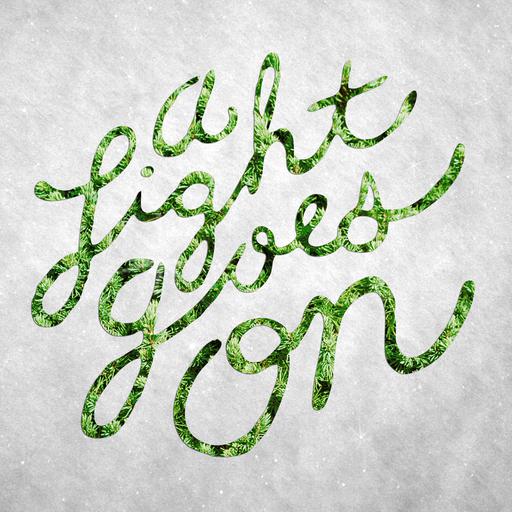 a
Light
goes
on